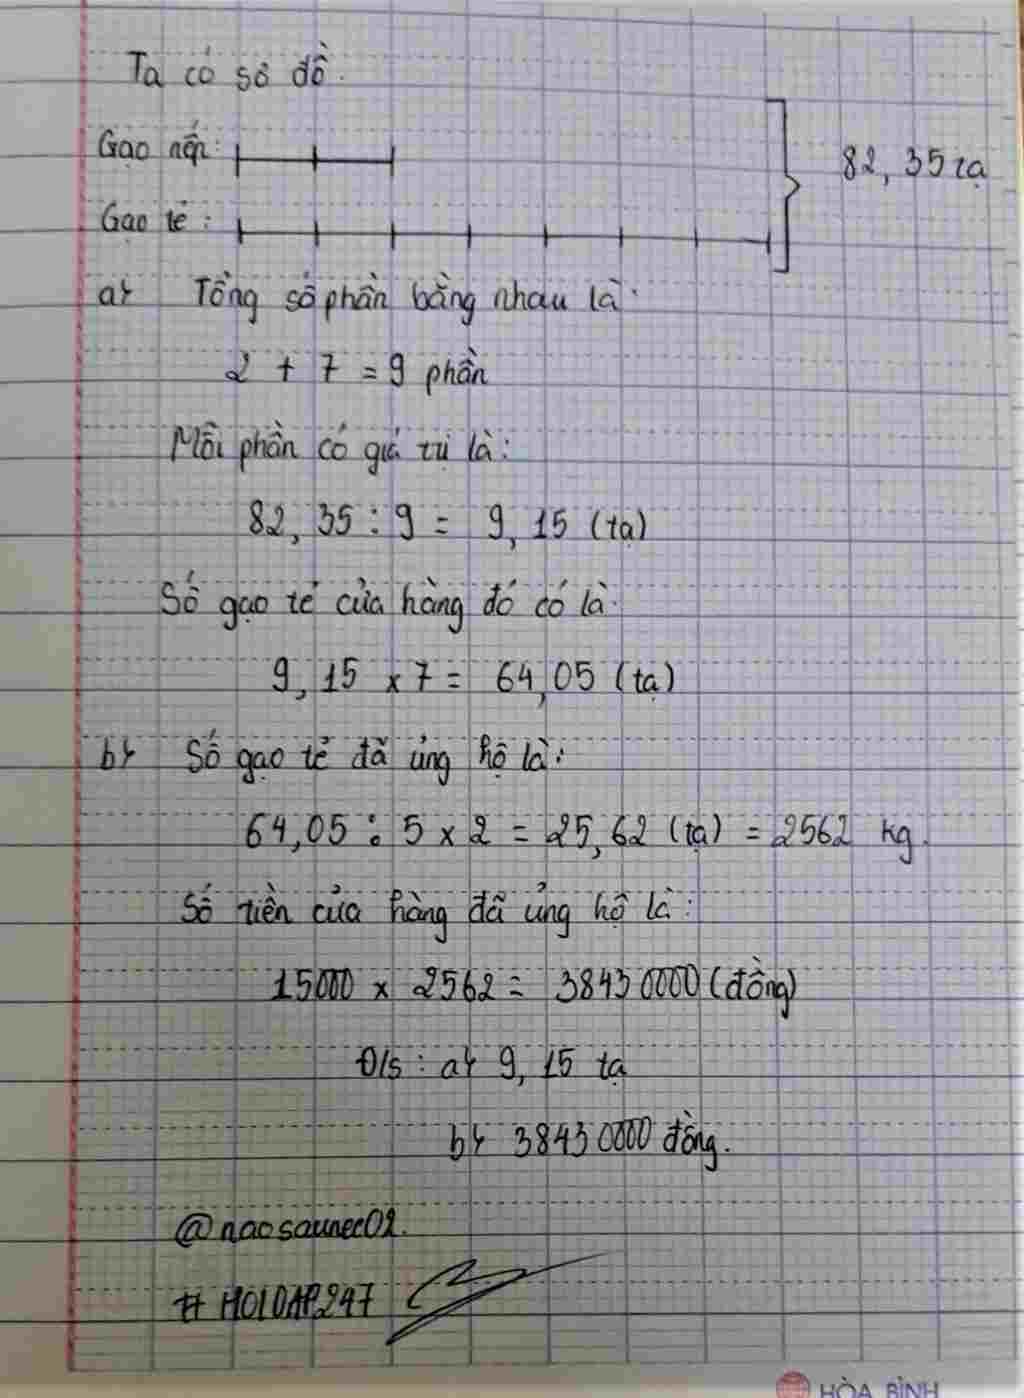 Ta có sơ đồ:
Gạo nếp:
82,35 tạ
Gạo tẻ:
a, Tổng số phần bằng nhau là:
2 + 7 = 9 phần
Mỗi phần có giá trị là:
82,35 : 9 = 9,15 (tạ)
Số gạo tẻ cửa hàng đó có là:
9,15 x 7 = 64,05 (tạ)
b, Số gạo tẻ đã ủng hộ là:
64,05 : 5 x 2 = 25,62 (tạ) = 2562 kg.
Số tiền cửa hàng đã ủng hộ là:
15000 x 2562 = 38430000 (đồng)
Đ/s: a, 9,15 tạ
b, 38430000 đồng.
@naosaunec02.
# HOIDAP247
HÒA BÌNH